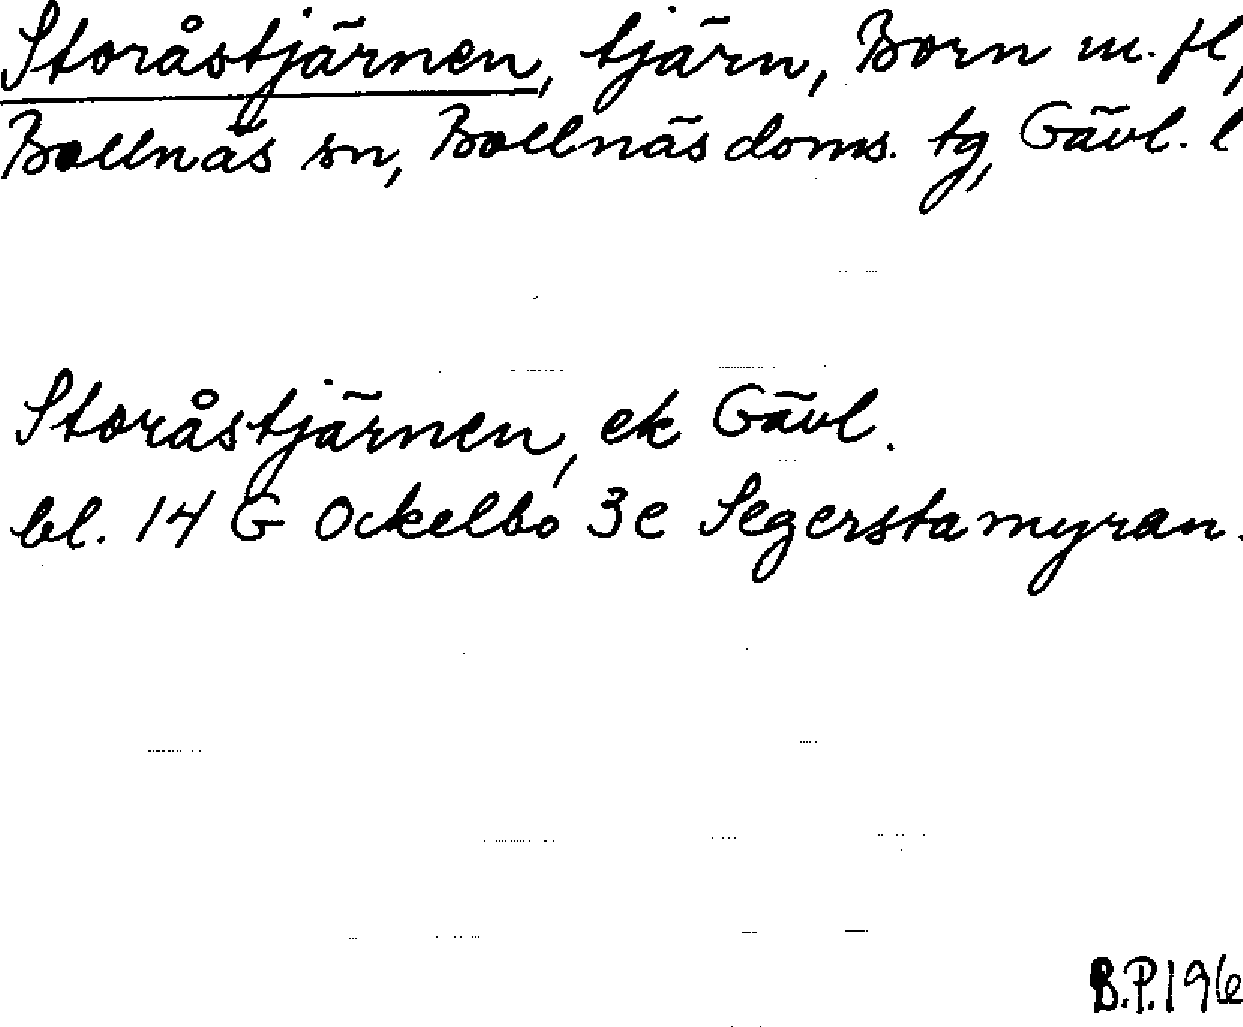 Storåstjärnen, tjärn, Born m. fl,
Bollnäs sn, Bollnäs doms. tg, Gävl. l
Storåstjärnen, ek Gävl.
bl. 14 G Ockelbo 3e Segerstamyran.
B.P.196